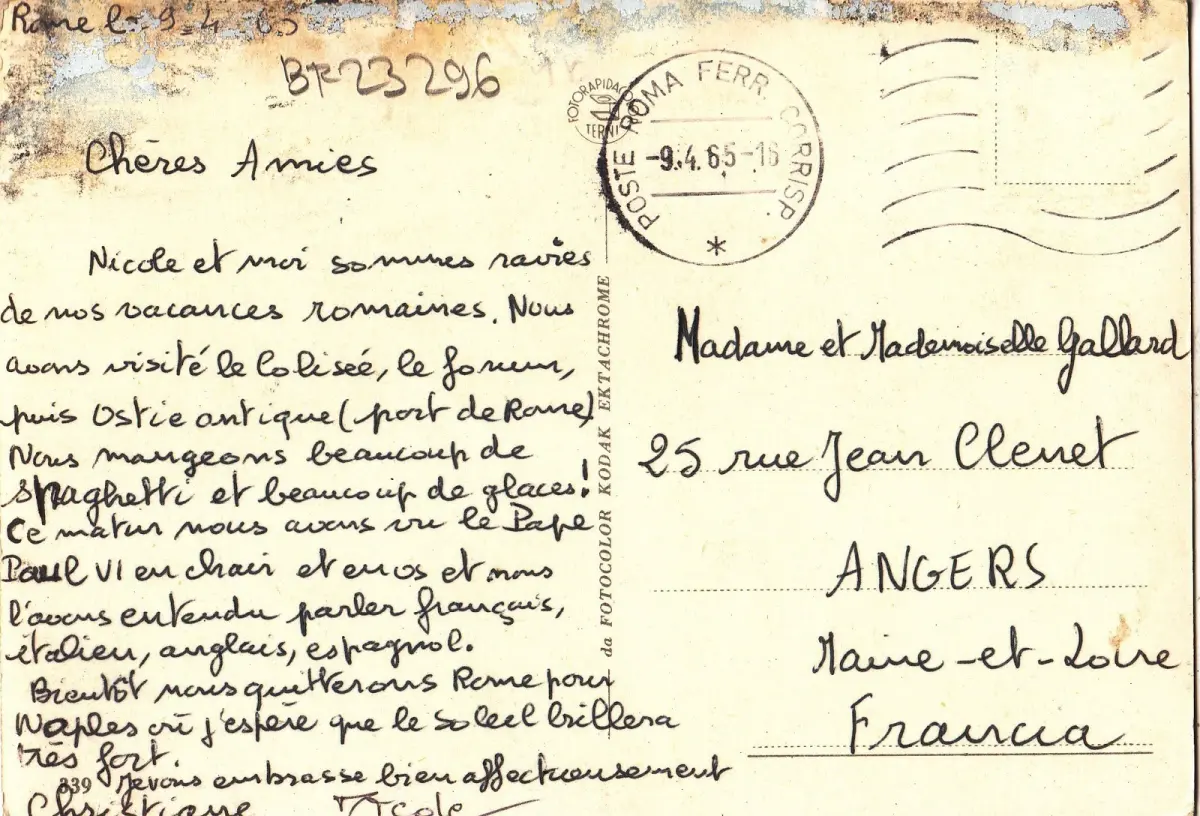 Rome le 9-4-65
BF23296
Chères Amies
Nicole et moi sommes ravies
de nos vacances romaines. Nous
avons visité le Colisée, le forum,
puis Ostie antique (port de Rome)
Nous mangeons beaucoup de
spaghetti et beaucoup de glaces!
Ce matin nous avons vu le Pape
Paul VI en chair et en os et nous
l'avons entendu parler français,
italien, anglais, espagnol.
Bientôt nous quitterons Rome pour
Naples où j'espère que le soleil brillera
très fort.
339 Je vous embrasse bien affectueusement
Christiane Nicole
FOTORAPIDACOLOR
TERNI
POSTE ROMA FERR. CORRISP.
-9.4.65-16
*
da FOTOCOLOR KODAK EKTACHROME
Madame et Mademoiselle Gallard
25 rue Jean Clenet
ANGERS
Maine-et-Loire
Francia